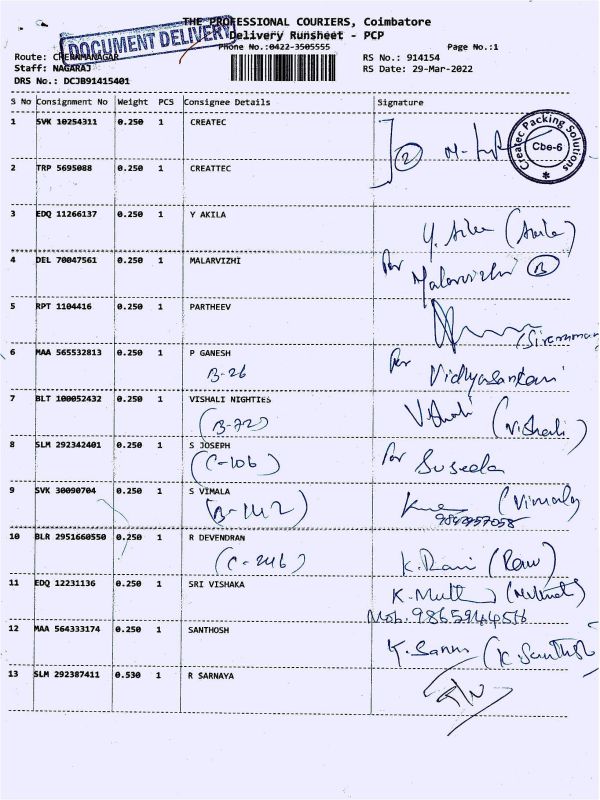 THE PROFESSIONAL COURIERS, Coimbatore
DOCUMENT DELIVERY
Delivery Runsheet - PCP
Phone No.:0422-3505555
Page No.:1
Route: CHERANMANAGAR
Staff: NAGARAJ
DRS No.: DCJB91415401
RS No.: 914154
RS Date: 29-Mar-2022
S No Consignment No Weight PCS Consignee Details Signature
1 SVK 10254311 0.250 1 CREATEC
2
Createc Packing Solutions
Cbe-6
2 TRP 5695088 0.250 1 CREATTEC
3 EDQ 11266137 0.250 1 Y AKILA
4 DEL 70047561 0.250 1 MALARVIZHI
for Malarvizhi B
5 RPT 1104416 0.250 1 PARTHEEV
6 MAA 565532813 0.250 1 P GANESH
B-26
for Vidhyasankari
7 BLT 100052432 0.250 1 VISHALI NIGHTIES
(B-72)
Vishali (Vishali)
8 SLM 292342401 0.250 1 S JOSEPH
(C-106)
for Suseela
9 SVK 30090704 0.250 1 S VIMALA
(B-142)
(Vimala)
9842957058
10 BLR 2951660550 0.250 1 R DEVENDRAN
(C-246)
K. Rani
11 EDQ 12231136 0.250 1 SRI VISHAKA
K. Muth
Mob. 9865944516
12 MAA 564333174 0.250 1 SANTHOSH
(K Santhosh
13 SLM 292387411 0.530 1 R SARNAYA